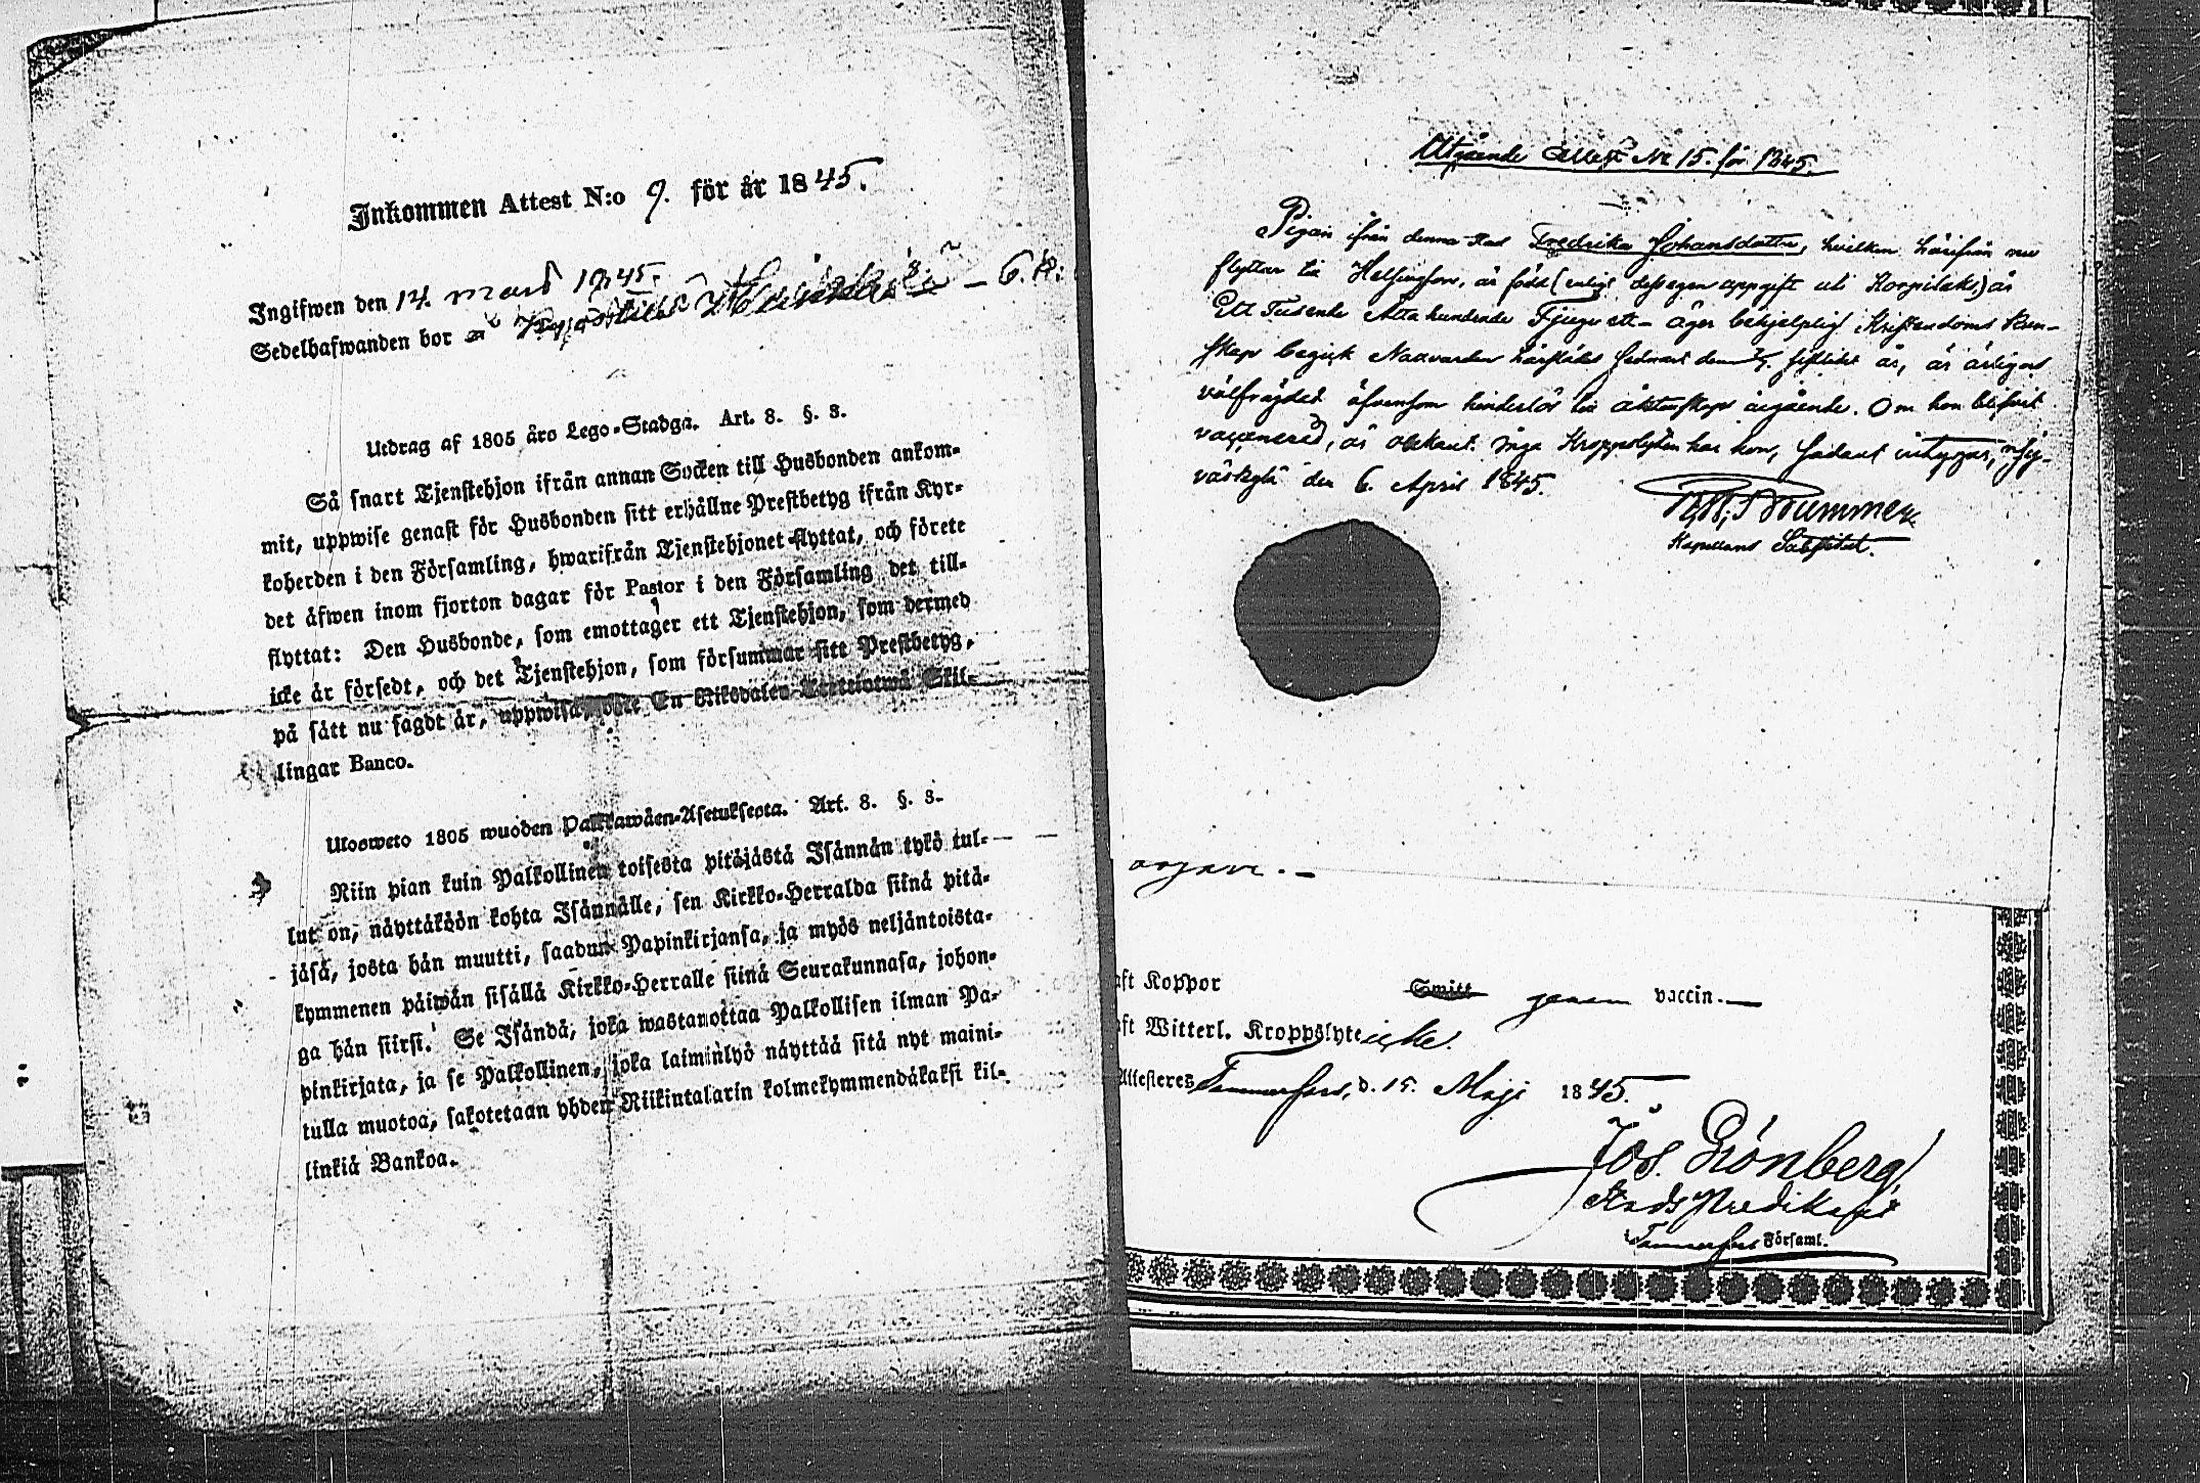 Inkommen Attest N:o 9. för år 1845.
Ingifwen den 14. mars 1845.
Sedelhafwanden bor
Utdrag af 1805 års Lego-Stadga. Art. 8. §. 3.
Så snart Tjenstehjon ifrån annan Socken till Husbonden ankom-
mit, uppwise genast för Husbonden sitt erhållne Prestbetyg ifrån Kyr-
koherden i den Församling, hwarifrån Tjenstehjonet flyttat, och förete
det äfwen inom fjorton dagar för Pastor i den Församling det till-
flyttat: Den Husbonde, som emottager ett Tjenstehjon, som dermed
icke är försedt, och det Tjenstehjon, som försummar sitt Prestbetyg,
på sätt nu sagdt är, uppwisa, böte En Riksdaler Trettiotwå Skil-
lingar Banco.
Ulosweto 1805 wuoden Palkkawäen-Asetuksesta. Art. 8. §. 3.
Niin pian kuin Palkollinen toisesta pitäjästä Isännän tykö tul-
lut on, näyttäköön kohta Isännälle, sen Kirkko-Herralda siinä pitä-
jäsä, josta hän muutti, saadun Papinkirjansa, ja myös neljäntoista-
kymmenen päiwän sisällä Kirkko-Herralle siinä Seurakunnasa, johon-
ga hän siirsi. Se Isändä, joka wastanottaa Palkollisen ilman Pa-
pinkirjata, ja se Palkollinen, joka laiminlyö näyttää sitä nyt maini-
tulla muotoa, sakotetaan yhden Riikintalarin kolmekymmendäkaksi kil-
linkiä Bankoa.
Utgående Attest No 15. för 1845.
Pigan ifrån denna stad Fredrika Johansdotter, hvilken härifrån nu
flyttar till Helsingfors, är född (enligt dess egen uppgift uti Korpilaks) år
Ett Tusende Åtta hundrade Tjugu ett – äger behjelplig Kristendoms kun-
skap begick Nattvarden härstädes sednast den sistlidet år, är ärligen
välfrägdad äfvensom hinderlös till äktenskaps ingående. Om hon blifvit
vaccinerad, är obekant. Inga Kroppslyten har hon, sådant intygas,
den 6. April 1845.
Kapellans Substitut.
aft Koppor Smitt genom vaccin.
aft Witterl. Kroppslyte icke.
Attesteres Tammerfors, d. 15. Maji 1845.
Jos. Grönberg
Stads Predikant
Tammerfors Församl.